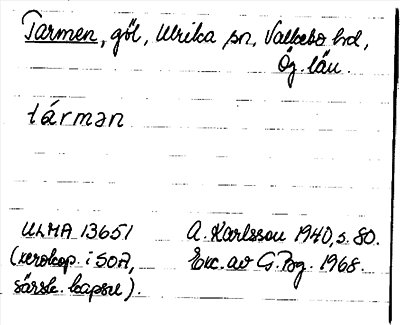 Tarmen, göl, Ulrika sn, Valkebo hd,
Ög. län.
tármən
ULMA 13651 A. Karlsson 1940, s. 80.
(xerokop. i SOA, Exc. av G. Bg. 1968.
särsk. kapsel).